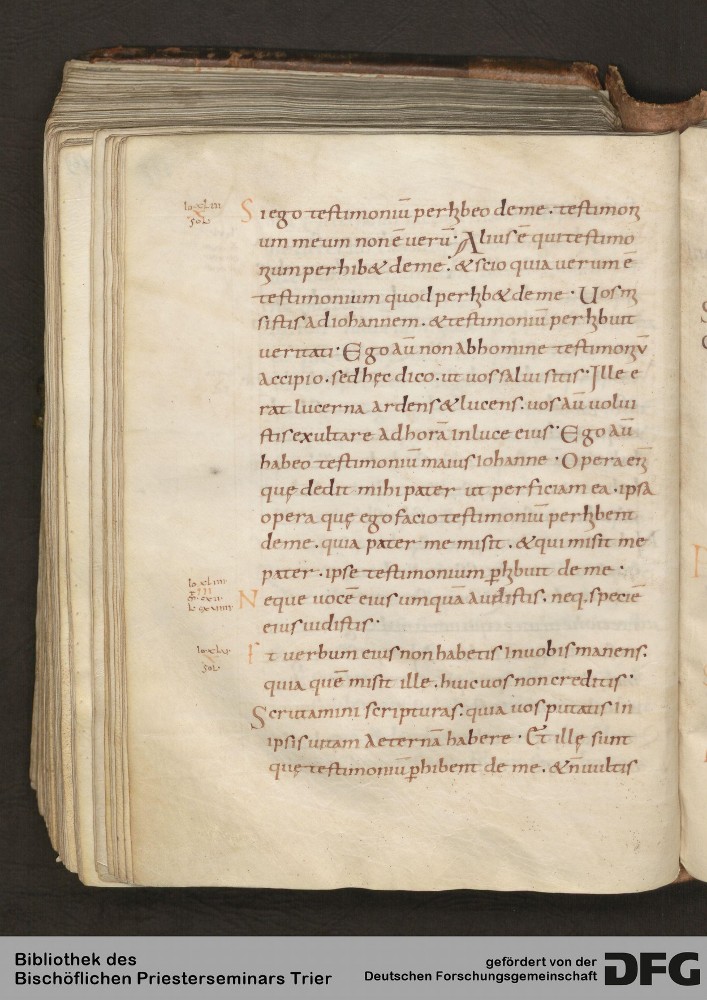 Io xliii
sol
Si ego testimoniū perhibeo de me. testimoni
um meum non ē verū. Alius ē qui testimo
nium perhib& de me. & scio quia verum ē
testimonium quod perhib& de me. Vos mi
sistis ad iohannem. & testimoniū perhibuit
veritati. Ego aū non ab homine testimoniū
accipio. sed hęc dico. ut vos salui sitis. Ille e
rat lucerna ardens & lucens. vos aū uolui
stis exultare ad horā in luce eius. Ego aū
habeo testimoniū maius iohanne. Opera eni
quę dedit mihi pater ut perficiam ea. ipsa
opera quę ego facio testimoniū perhibent
de me. quia pater me misit. & qui misit me
pater. ipse testimonium ꝑhibuit de me.
Neque uocē eius umquā audistis. neq. speciē
eius uidistis.
Et verbum eius non habetis in uobis manens.
sol
quia quē misit ille. huic uos non creditis.
Scrutamini scripturas. quia uos putatis in
ipsis uitam aeternā habere. Et illę sunt
quę testimoniū ꝑhibent de me. & n̄ uultis
Bibliothek des
Bischöflichen Priesterseminars Trier
gefördert von der
Deutschen Forschungsgemeinschaft
DFG